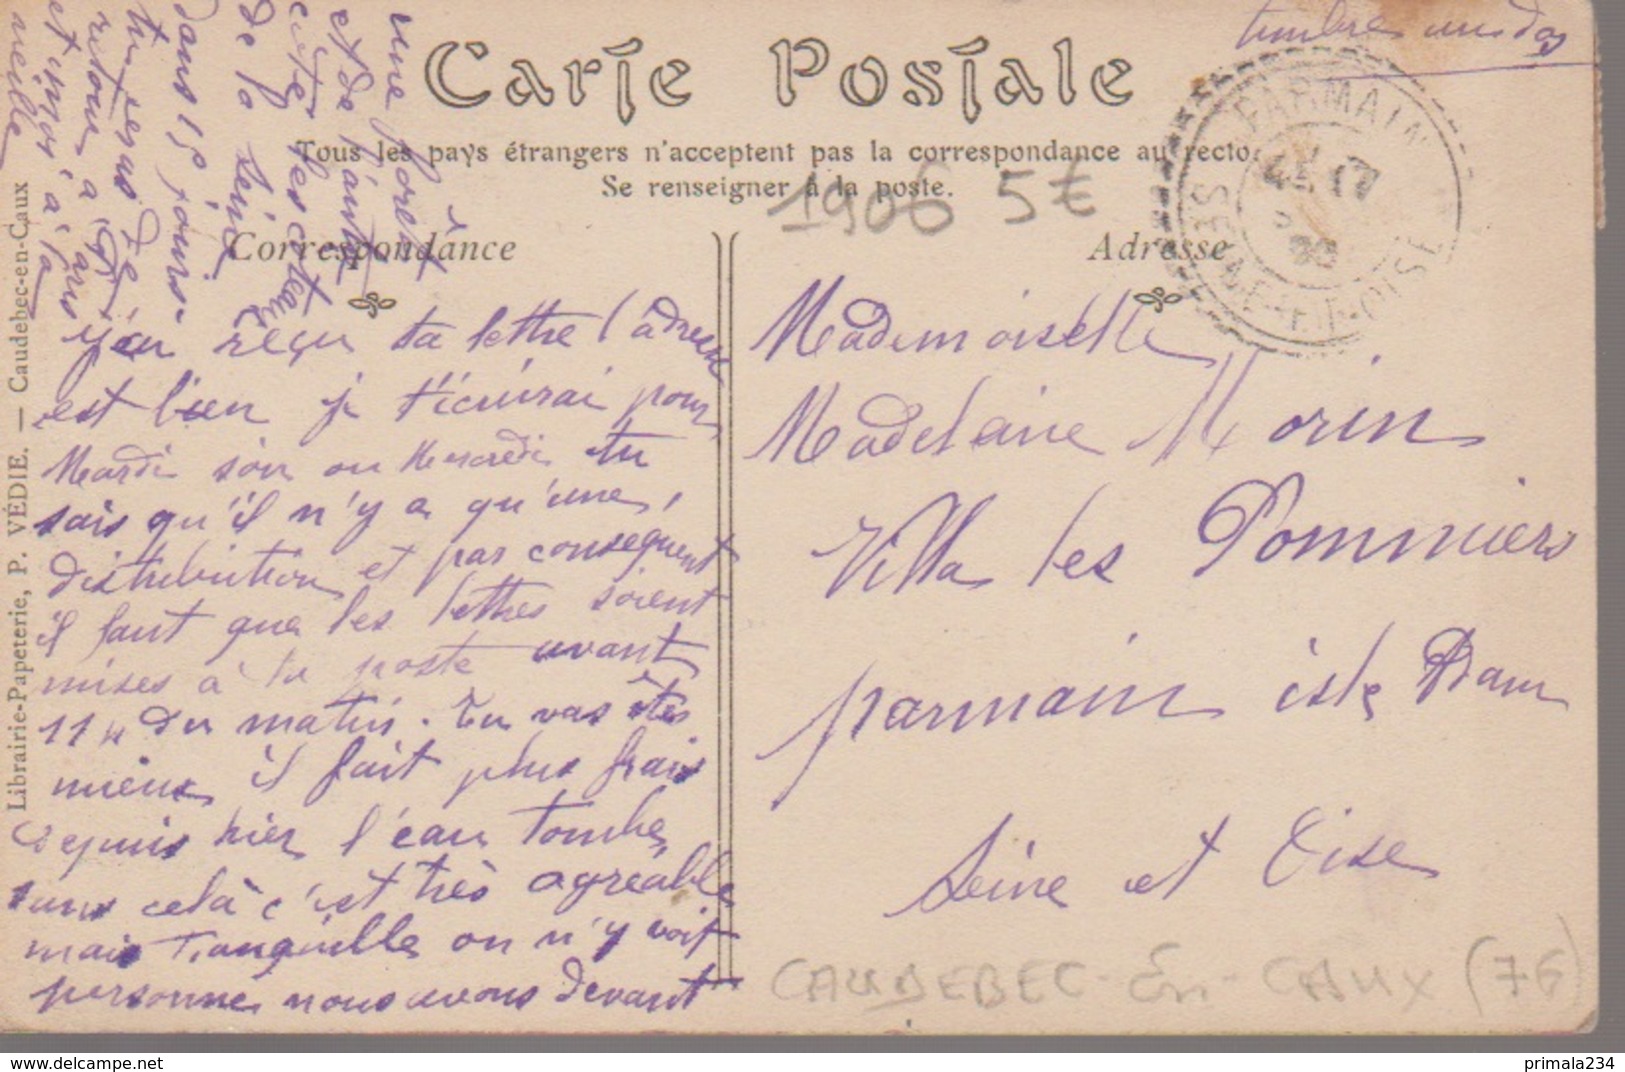 timbre au dos
Carte Postale
Tous les pays étrangers n'acceptent pas la correspondance au recto.
Se renseigner à la poste.
1906 5€
Correspondance
Adresse
PARMAIN
SEINE-ET-OISE
Librairie-Papeterie, P. VÉDIE. — Caudebec-en-Caux
j'ai reçu ta lettre l'adresse
est bien je t'écrirai pour
Mardi soir ou Mercredi tu
sais qu'il n'y a qu'une
distribution et par conséquent
il faut que les lettres soient
mises à la poste avant
11 h du matin. Tu vas être
mieux il fait plus frais
depuis hier l'eau tombe
sans celà c'est très agréable
mais tranquille on n'y voit
personne nous avons devant
une forêt
et de l'autre
côté les coteaux
de la Seine
dans 15 jours
tu seras de
retour à
et moi à la
veille
Mademoiselle
Madelaine Morin
Villa les Pommiers
parmain isle Adam
Seine et Oise
CAUDEBEC-En-CAUX (76)
www.delcampe.net
primala234